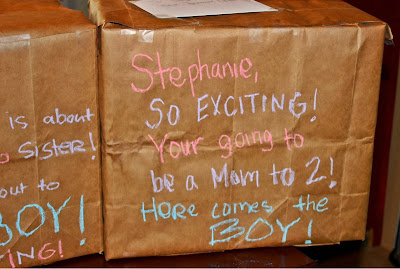 is about
sister!
out to
BOY!
ING!
Stephanie,
SO EXCITING!
Your going to
be a Mom to 2!
Here comes the
BOY!